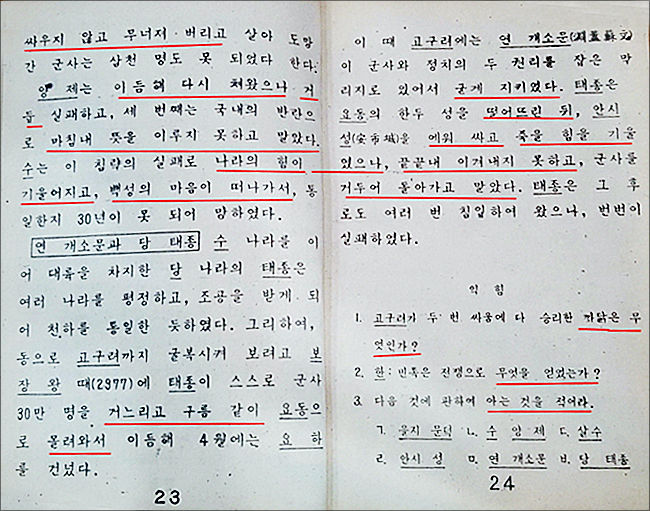 싸우지 않고 무너저 버리고 살아 도망
간 군사는 삼천 명도 못 되었다 한다.
양 제는 이듬해 다시 쳐왔으나 거
듭 실패하고, 세 번째는 국내의 반란으
로 마침내 뜻을 이루지 못하고 말았다.
수는 이 침략의 실패로 나라의 힘이
기울어지고, 백성의 마음이 떠나가서, 통
일한지 30년이 못 되어 망하였다.
연 개소문과 당 태종 수 나라를 이
어 대륙을 차지한 당 나라의 태종은
여러 나라를 평정하고, 조공을 받게 되
어 천하를 통일한 듯하였다. 그리하여,
동으로 고구려까지 굴복시켜 보려고 보
장 왕 때(2977)에 태종이 스스로 군사
30만 명을 거느리고 구름 같이 요동으
로 몰려와서 이듬해 4월에는 요하
를 건넜다.
23
이 때 고구려에는 연 개소문(淵蓋蘇文)
이 군사와 정치의 두 권리를 잡은 막
리지로 있어서 굳게 지키었다. 태종은
요동의 한두 성을 떨어뜨린 뒤, 안시
성(安市城)을 에워 싸고 죽을 힘을 기울
였으나, 끝끝내 이겨내지 못하고, 군사를
거두어 돌아가고 말았다. 태종은 그 후
로도 여러 번 침입하여 왔으나, 번번이
실패하였다.
익 힘
1. 고구려가 두 번 싸움에 다 승리한 까닭은 무
엇인가?
2. 한: 민족은 전쟁으로 무엇을 얻었는가?
3. 다음 것에 관하여 아는 것을 적어라.
ㄱ. 을지 문덕 ㄴ. 수 양 제 ㄷ. 살수
ㄹ. 안시 성 ㅁ. 연 개소문 ㅂ. 당 태종
24